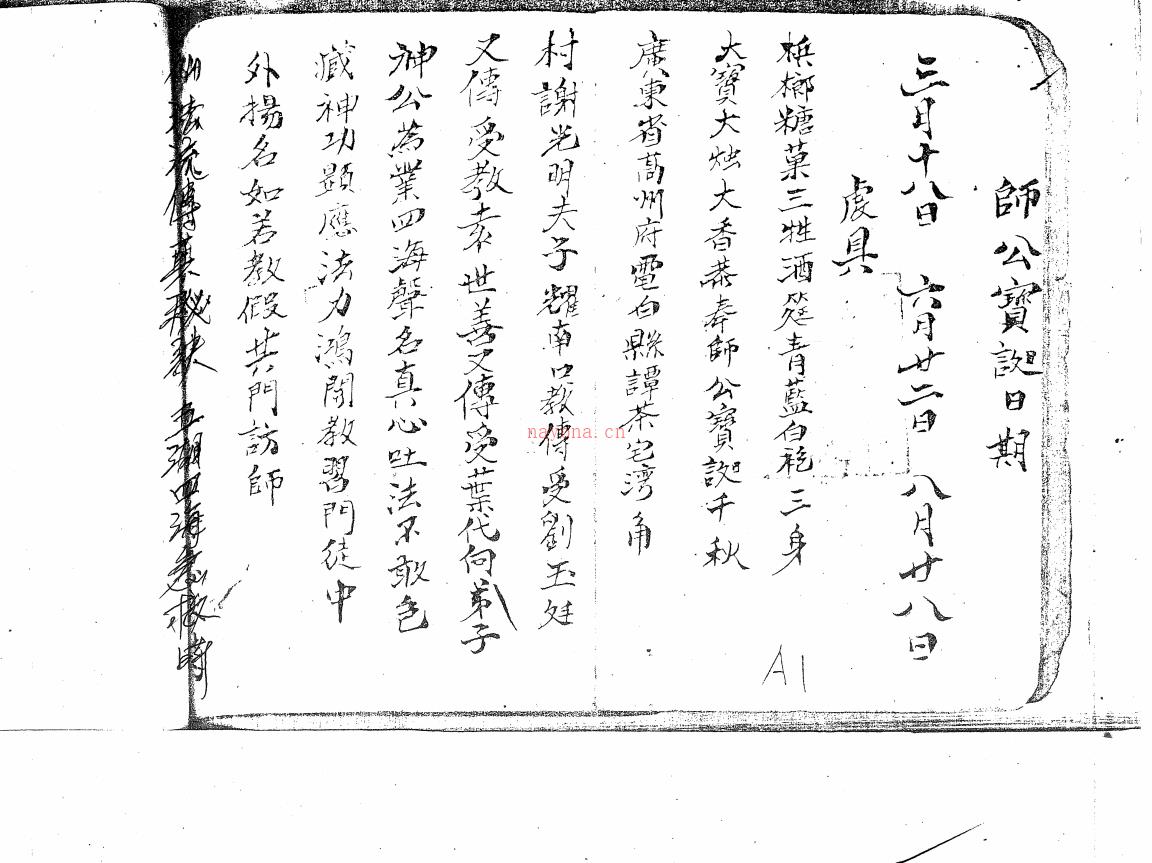 師公寶誕日期
三月十八日 六月廿二日 八月廿八日
虔具
槟榔糖菓三牲酒筵青藍白袍三身
大寶大烛大香恭奉師公寶誕千秋
廣東省高州府電白縣譚茶宅湾角
村謝光明夫子耀南口教傳受劉玉廷
又傳受教袁世善又傳受葉代向弟子
神公為業四海聲名真心吐法不敢色
藏神功顕應法力鴻開教習門徒中
外揚名如若教假共門訪師
法 傳真秘訣 五湖四海急救時
nayona.cn
A1